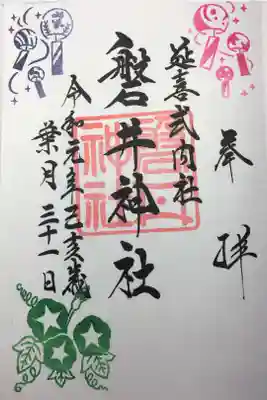 奉拝
延喜式内社
磐井神社
令和元年己亥歳
葉月三十一日
磐井神社